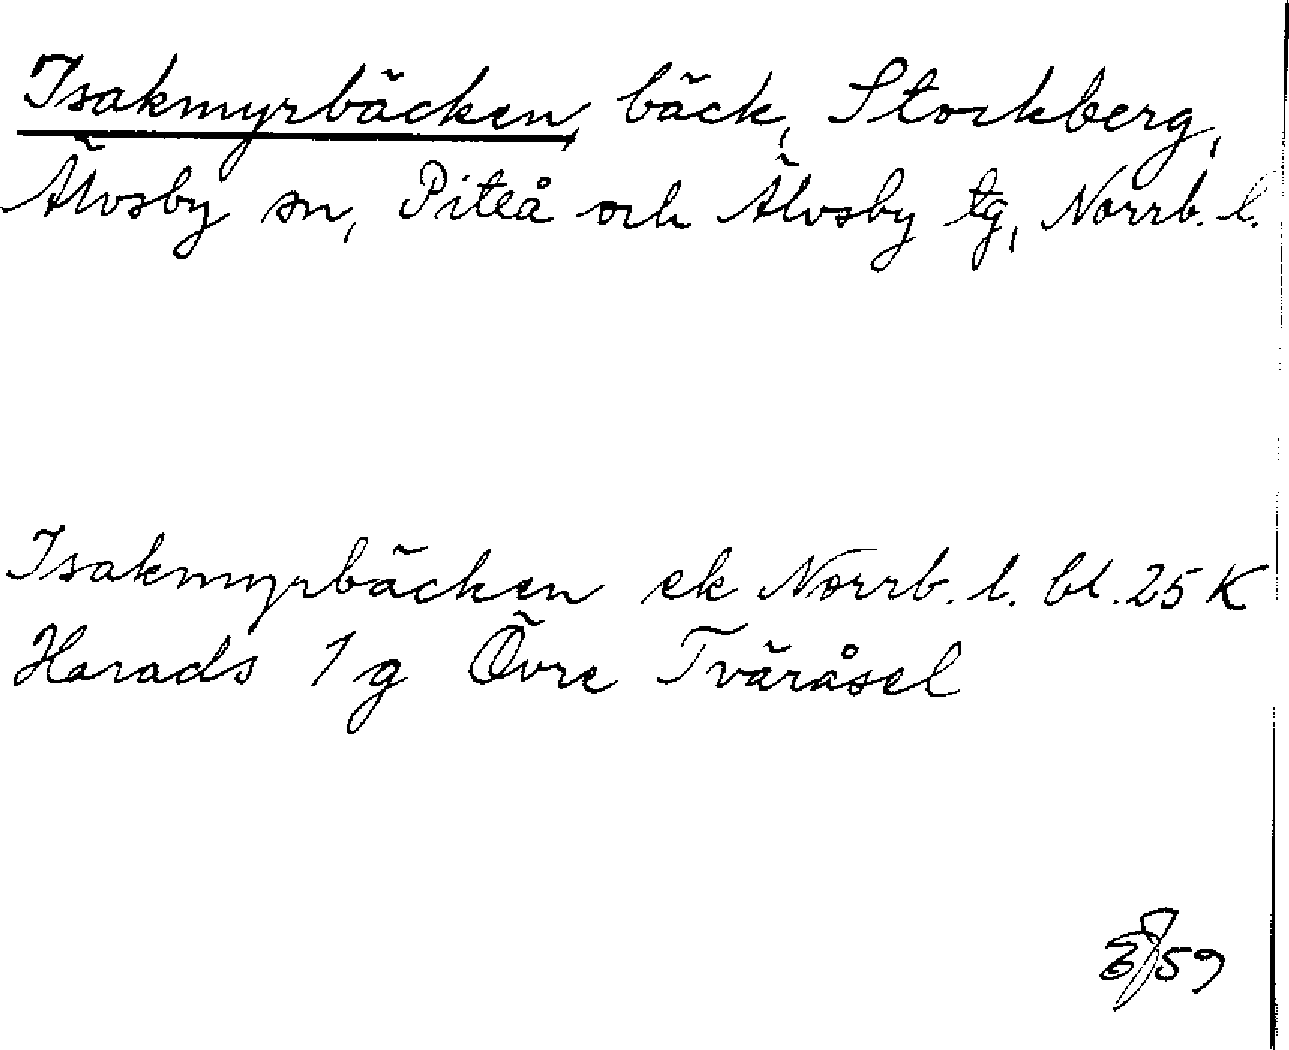 Isakmyrbäcken, bäck, Storkberg,
Älvsby sn, Piteå och Älvsby tg, Norrb. l.
Isakmyrbäcken ek Norrb. l. bl. 25 K
Harads 1 g Övre Tväråsel
59